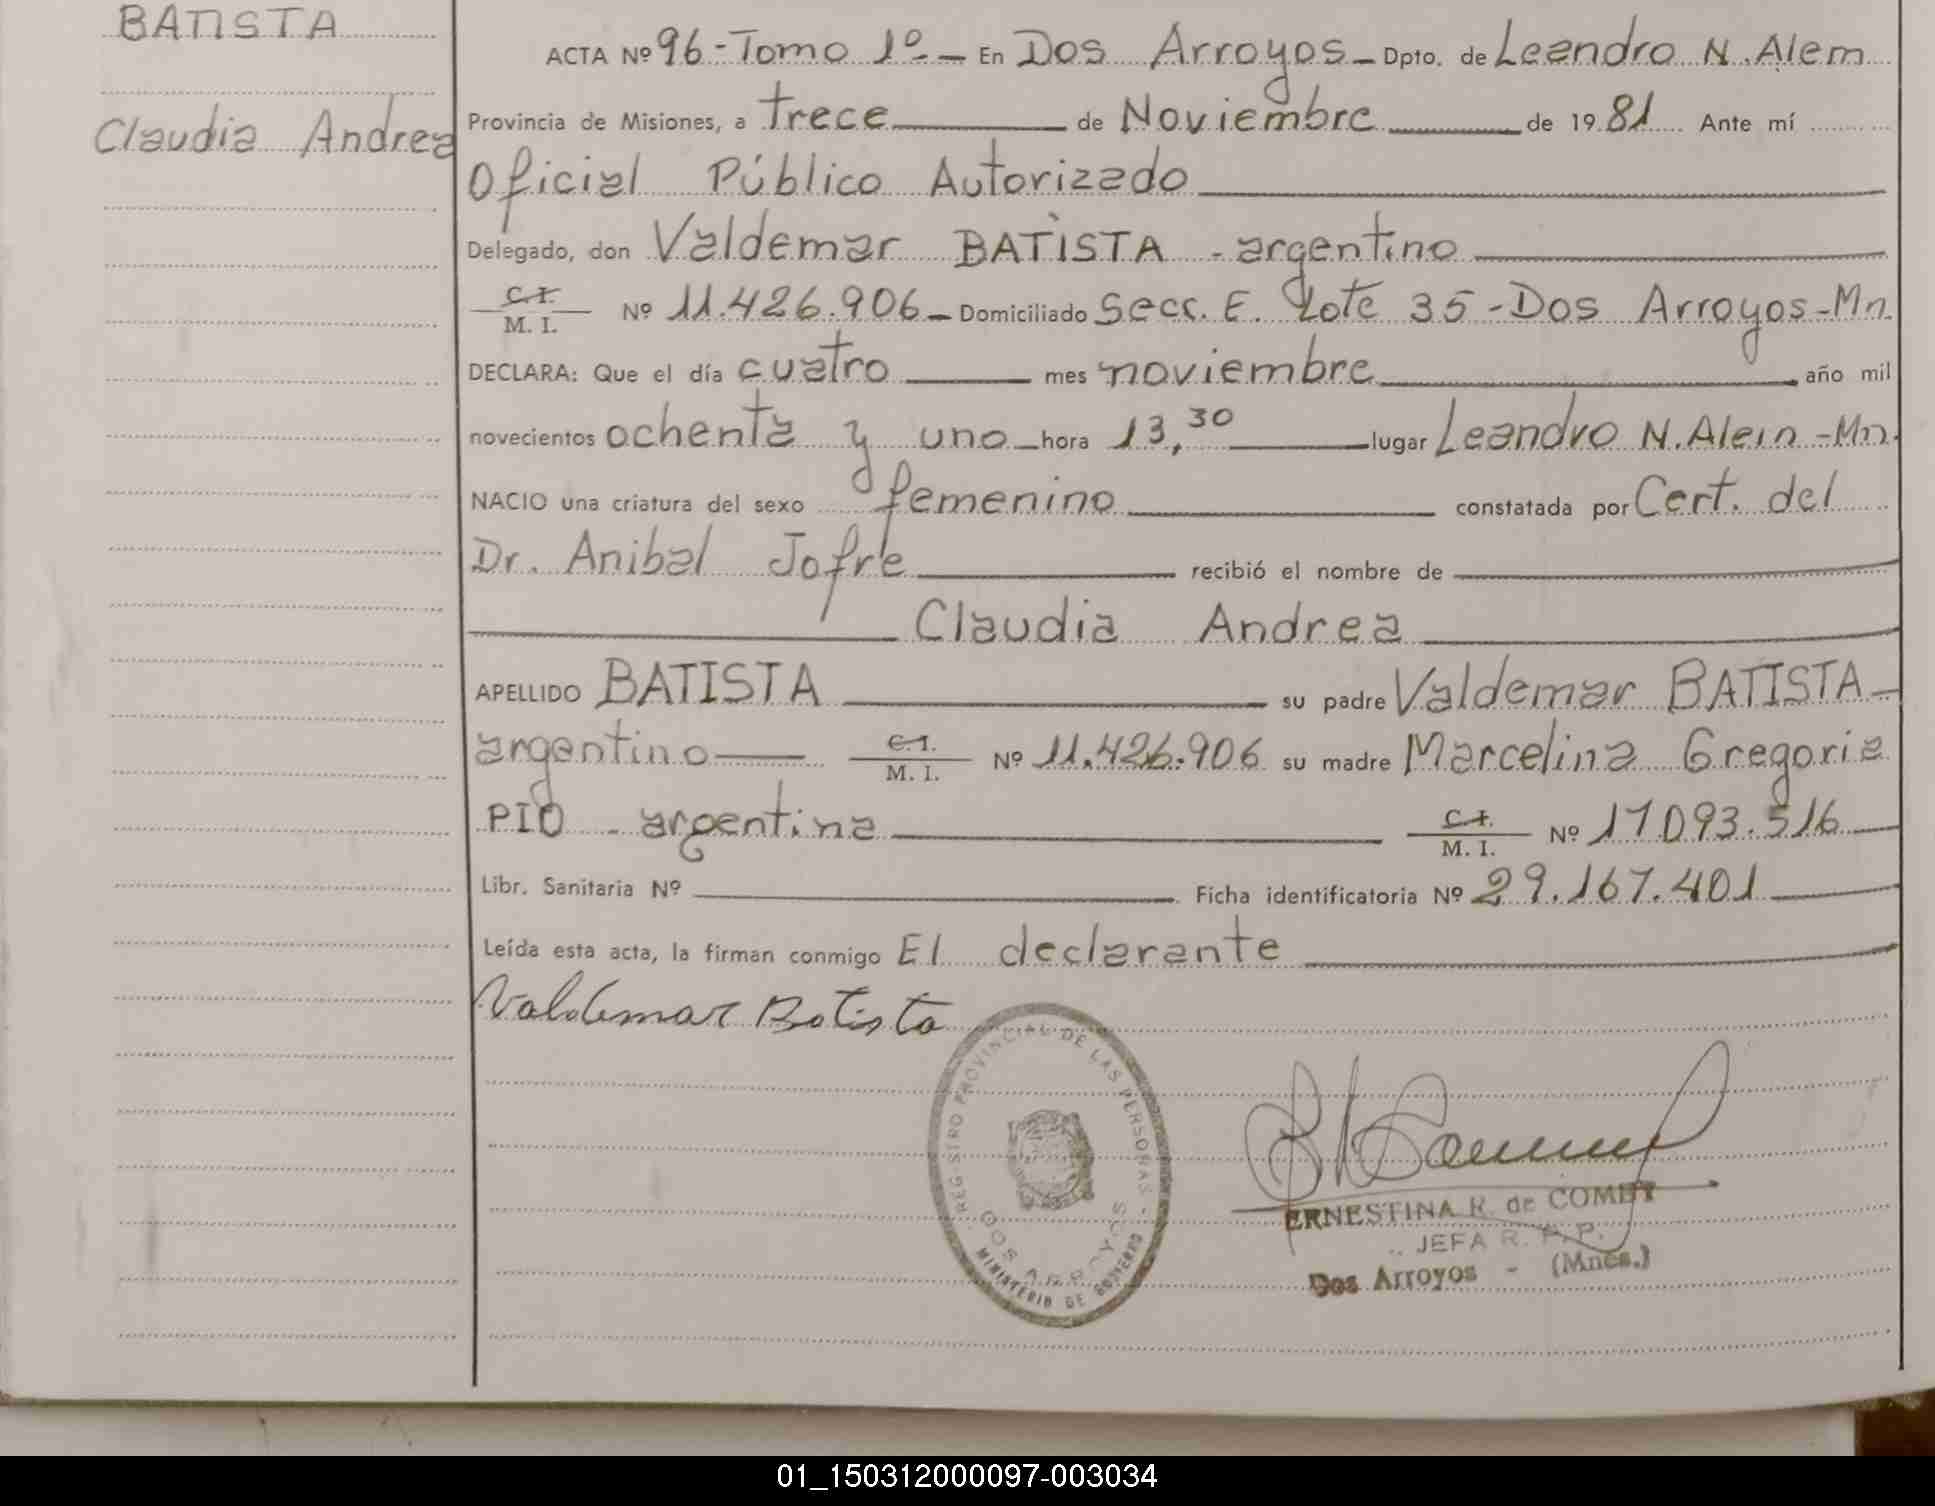 BATISTA
Claudia Andrea
ACTA Nº 96-Tomo 1º- En Dos Arroyos- Dpto. de Leandro N. Alem
Provincia de Misiones, a trece de Noviembre de 1981 Ante mí
Oficial Público Autorizado
Delegado, don Valdemar BATISTA - argentino
C.I.
M. I. Nº 11.426.906- Domiciliado Secc. E. Lote 35-Dos Arroyos-Mn.
DECLARA: Que el día cuatro mes noviembre año mil
novecientos ochenta y uno hora 13,30 lugar Leandro N. Alem -Mn.
NACIO una criatura del sexo femenino constatada por Cert. del
Dr. Anibal Jofre recibió el nombre de
Claudia Andrea
APELLIDO BATISTA su padre Valdemar BATISTA-
argentino C.I.
M. I. Nº 11.426.906 su madre Marcelina Gregoria
PIO - argentina C.I.
M. I. Nº 17093.516
Libr. Sanitaria Nº Ficha identificatoria Nº 29.167.401
Leída esta acta, la firman conmigo El declarante
Valdemar Batista
REGISTRO PROVINCIAL DE LAS PERSONAS -
DOS ARROYOS
MINISTERIO DE GOBIERNO
ERNESTINA R. de COMBY
JEFA R. P. P.
Dos Arroyos - (Mnes.)
01_150312000097-003034